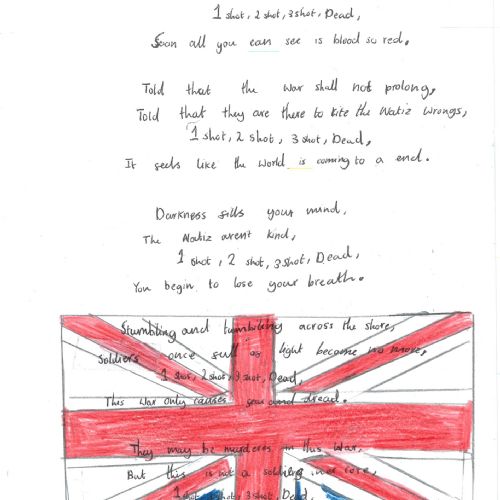 1 shot, 2 shot, 3 shot, Dead,
Soon all you can see is blood so red.
Told that the war shall not prolong,
Told that they are there to rite the Natiz wrongs,
1 shot, 2 shot, 3 shot, Dead,
It feels like the world is coming to a end.
Darkness fills your mind,
The Natiz arent kind,
1 shot, 2 shot, 3 shot, Dead,
You begin to lose your breath.
Stumbling and tumbling across the shore,
Soldiers once full of light become no more,
1 shot, 2 shot, 3 shot, Dead,
This war only causes fear and dread.
They may be murderes in this war,
But this is not a soldiers core,
1 shot, 2 shot, 3 shot, Dead,